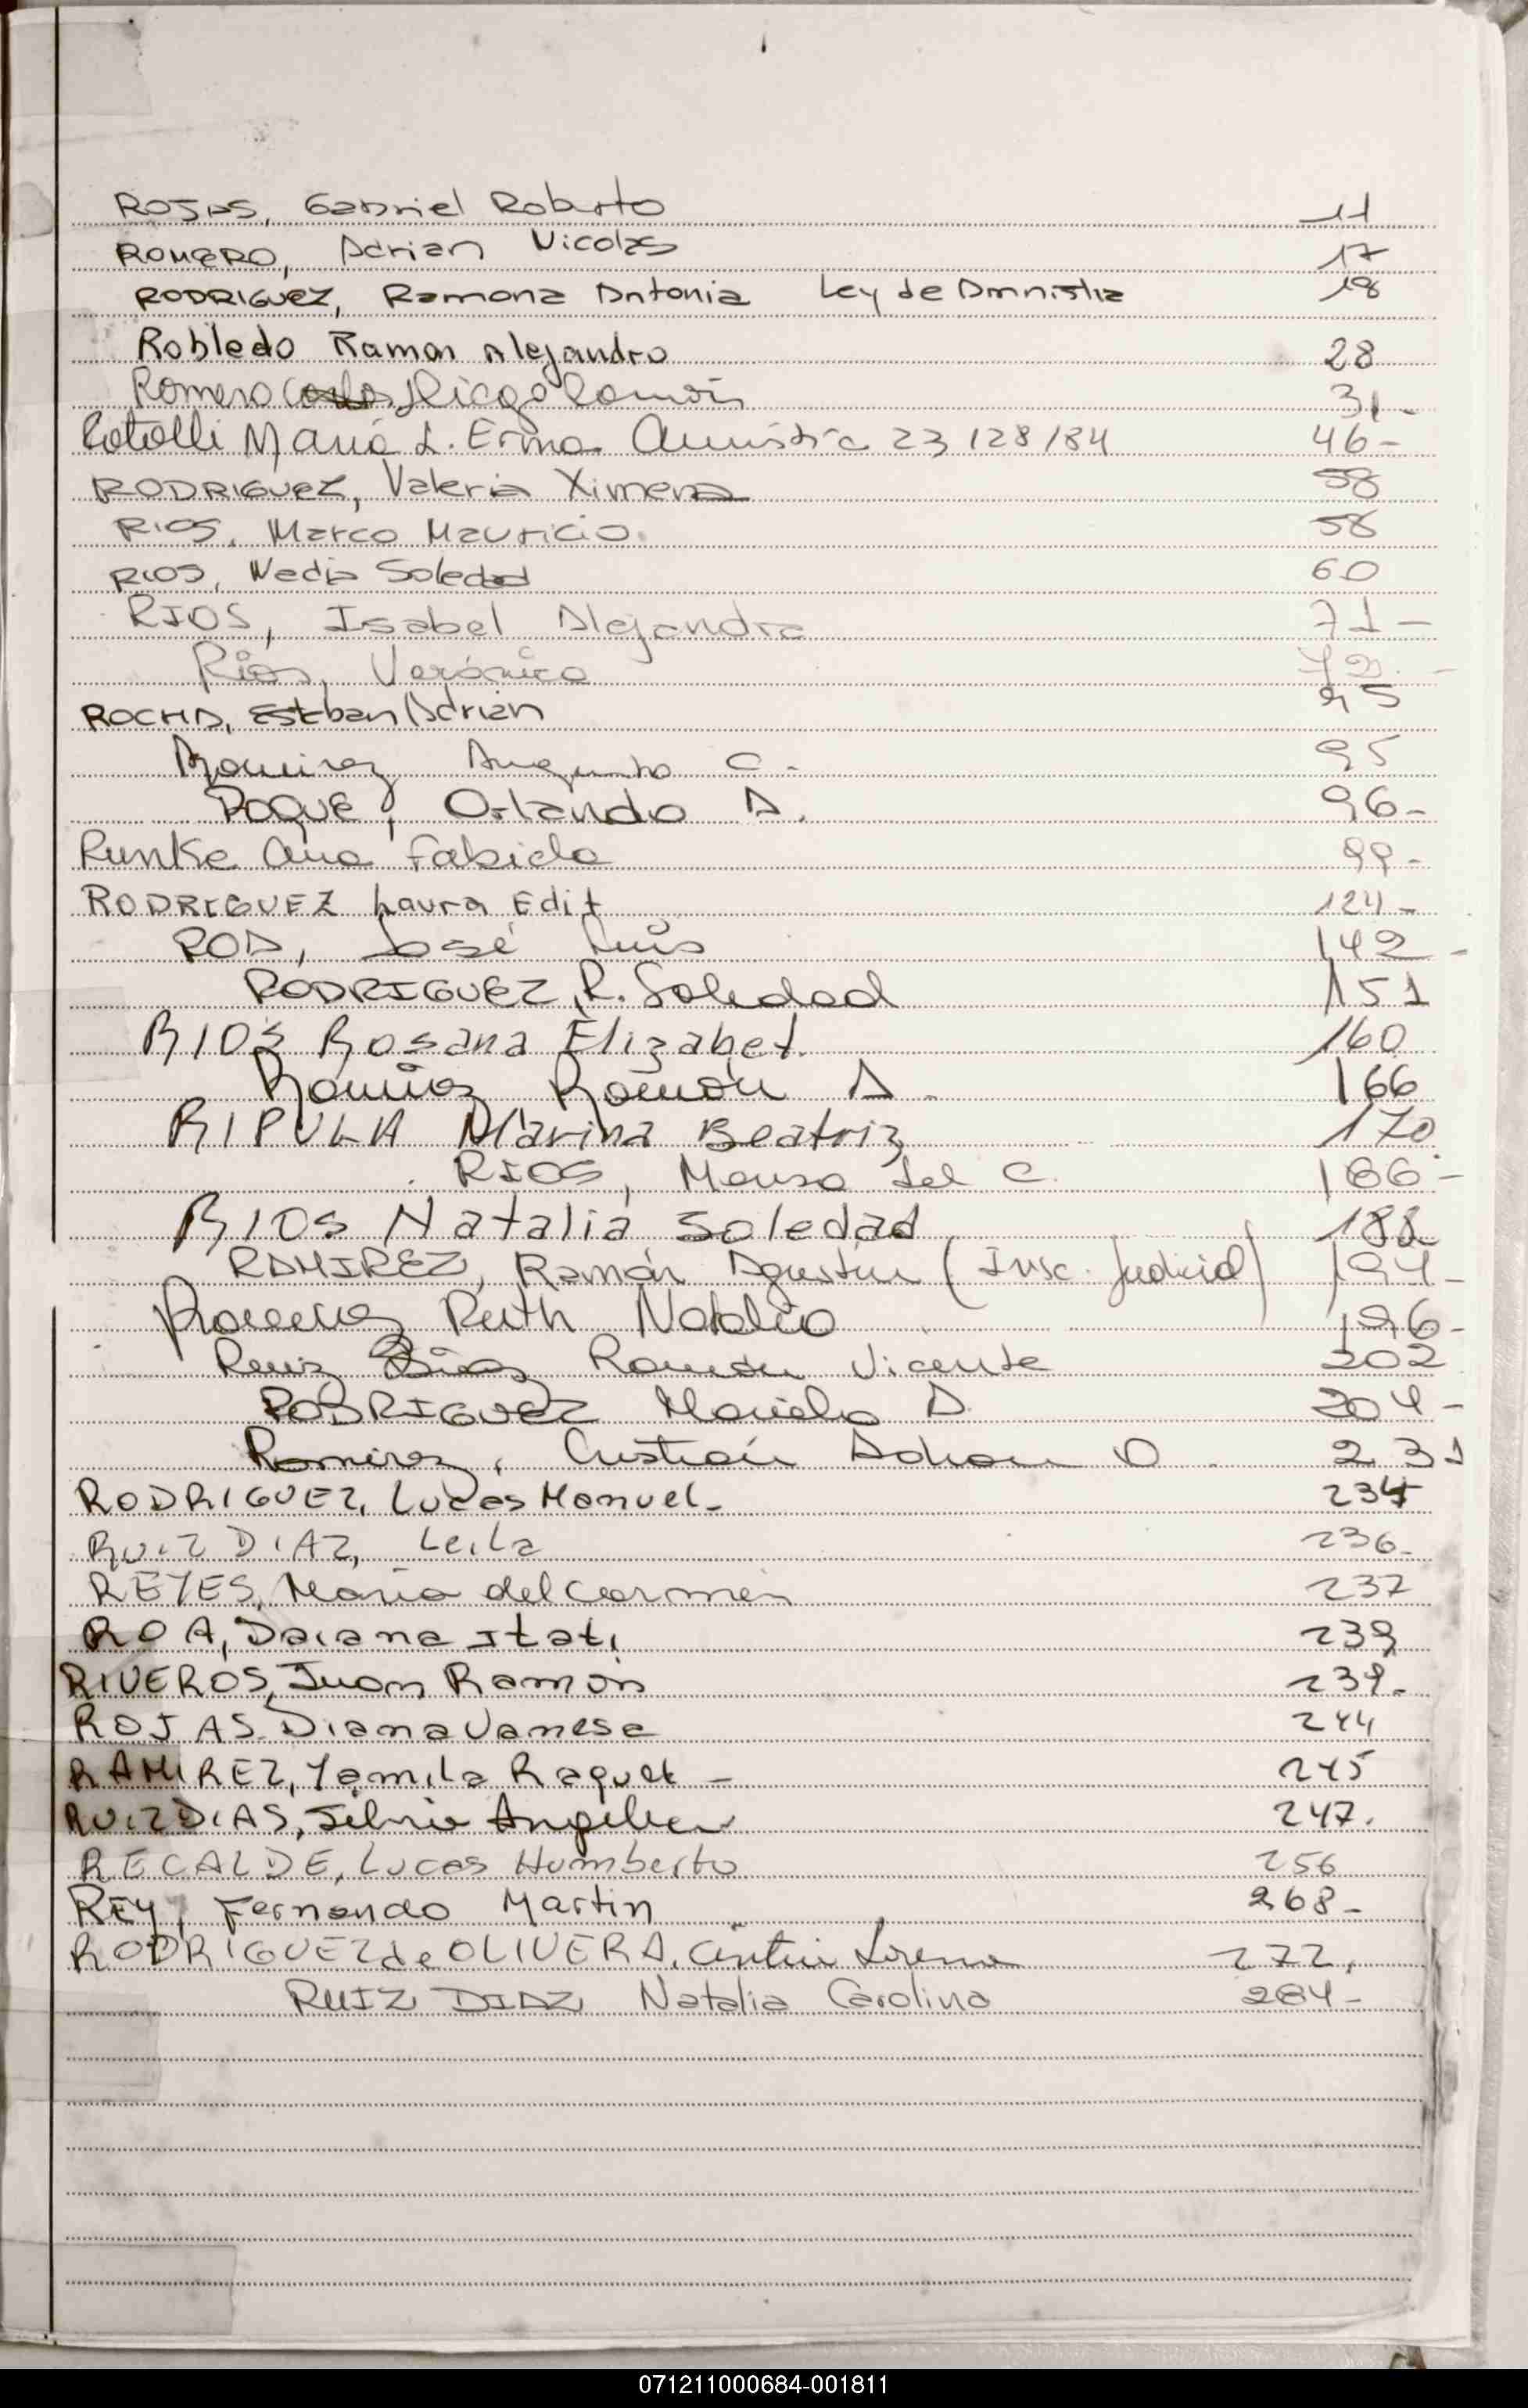 ROJAS, Gabriel Roberto 11
ROMERO, Adrian Nicolas 17
RODRIGUEZ, Ramona Antonia Ley de Amnistia 18
Robledo Ramon Alejandro 28
Romero Diego Ramón 31-
Rotolli Maria L. Erma Amnistia 23128/84 46-
RODRIGUEZ, Valeria Ximena 58
RIOS, Marco Mauricio. 58
RIOS, Nadia Soledad 60
RIOS, Isabel Alejandra 71-
Rios, Verónica
ROCHA, Esteban Adrian 95
Ramirez Augusto C. 95
ROQUE, Orlando A. 96-
Runke Ana Fabiola 99-
RODRIGUEZ Laura Edit 124-
ROA, José Luis 142-
RODRIGUEZ, R. Soledad 151
RIOS Rosana Elizabet. 160
Ramirez Ramón A. 166
RIPULA Marina Beatriz 170
RIOS, del C. 186-
RIOS Natalia Soledad 188
RAMIREZ, Ramón Agustin (Insc. Judicial) 194-
Ramirez Ruth Natalia 196-
Ruiz Diaz Ramón Vicente 202
RODRIGUEZ Mariela A. 204-
Ramirez, Cristian Adrian O. 231
RODRIGUEZ, Lucas Manuel- 234
RUIZ DIAZ, Leila 236-
REYES, Maria del Carmen 237
ROA, Daiana Itati 239
RIVEROS, Juan Ramón 239-
ROJAS Diana Vanesa 244
RAMIREZ, Yamila Raquel - 245
RUIZ DIAS, Silvia Angelica 247.
RECALDE, Lucas Humberto 256
REY, Fernando Martin 268-
RODRIGUEZ de OLIVERA, Cintia Lorena 272.
RUIZ DIAZ Natalia Carolina 284-
071211000684-001811